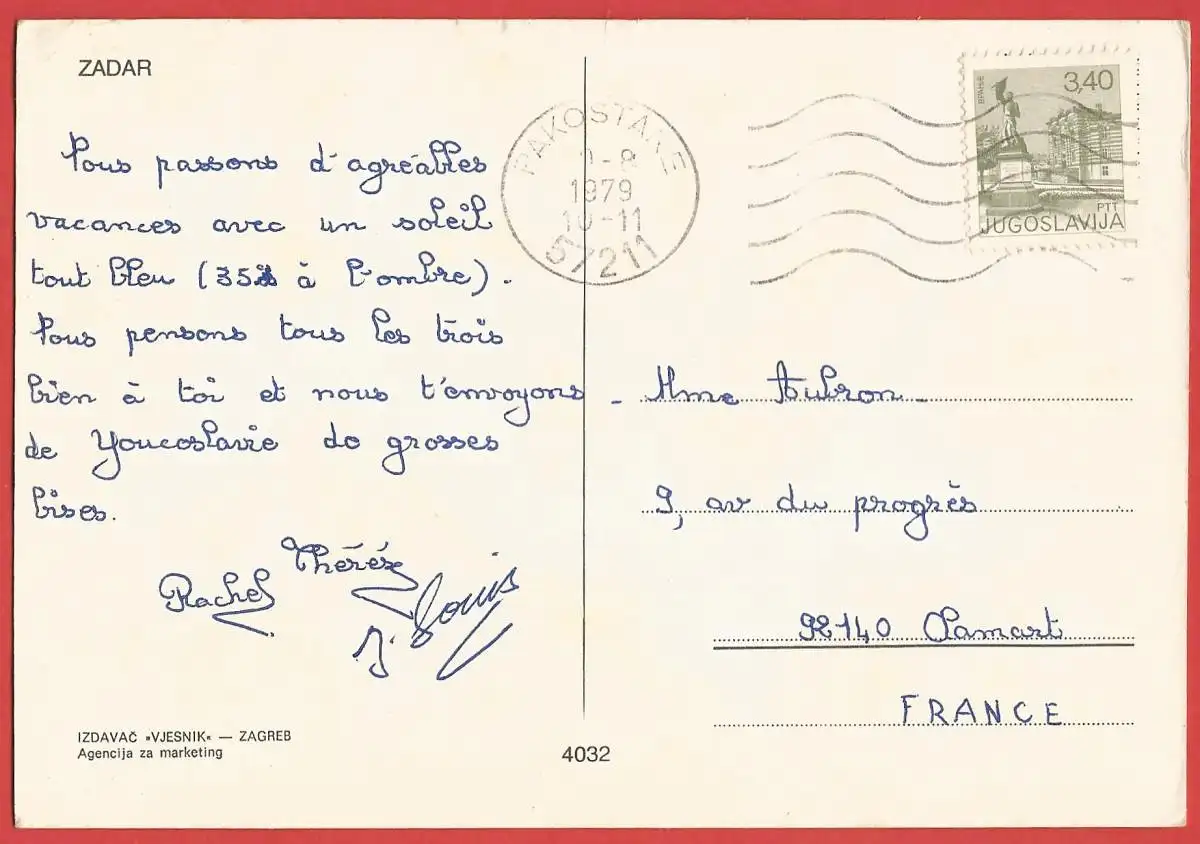 ZADAR
Nous passons d'agréables
vacances avec un soleil
tout bleu (35 à l'ombre).
Nous pensons tous les trois
bien à toi et nous t'envoyons
de Youcoslavie de grosses
bises.
Rachel
Thérèse
J. Louis
IZDAVAČ »VJESNIK« — ZAGREB
Agencija za marketing
4032
PAKOSTANE
-8
1979
10-11
57211
ВРАЊЕ
3,40
PTT
JUGOSLAVIJA
- Mme Aubron -
9, av du progrès
92140 Clamart
FRANCE